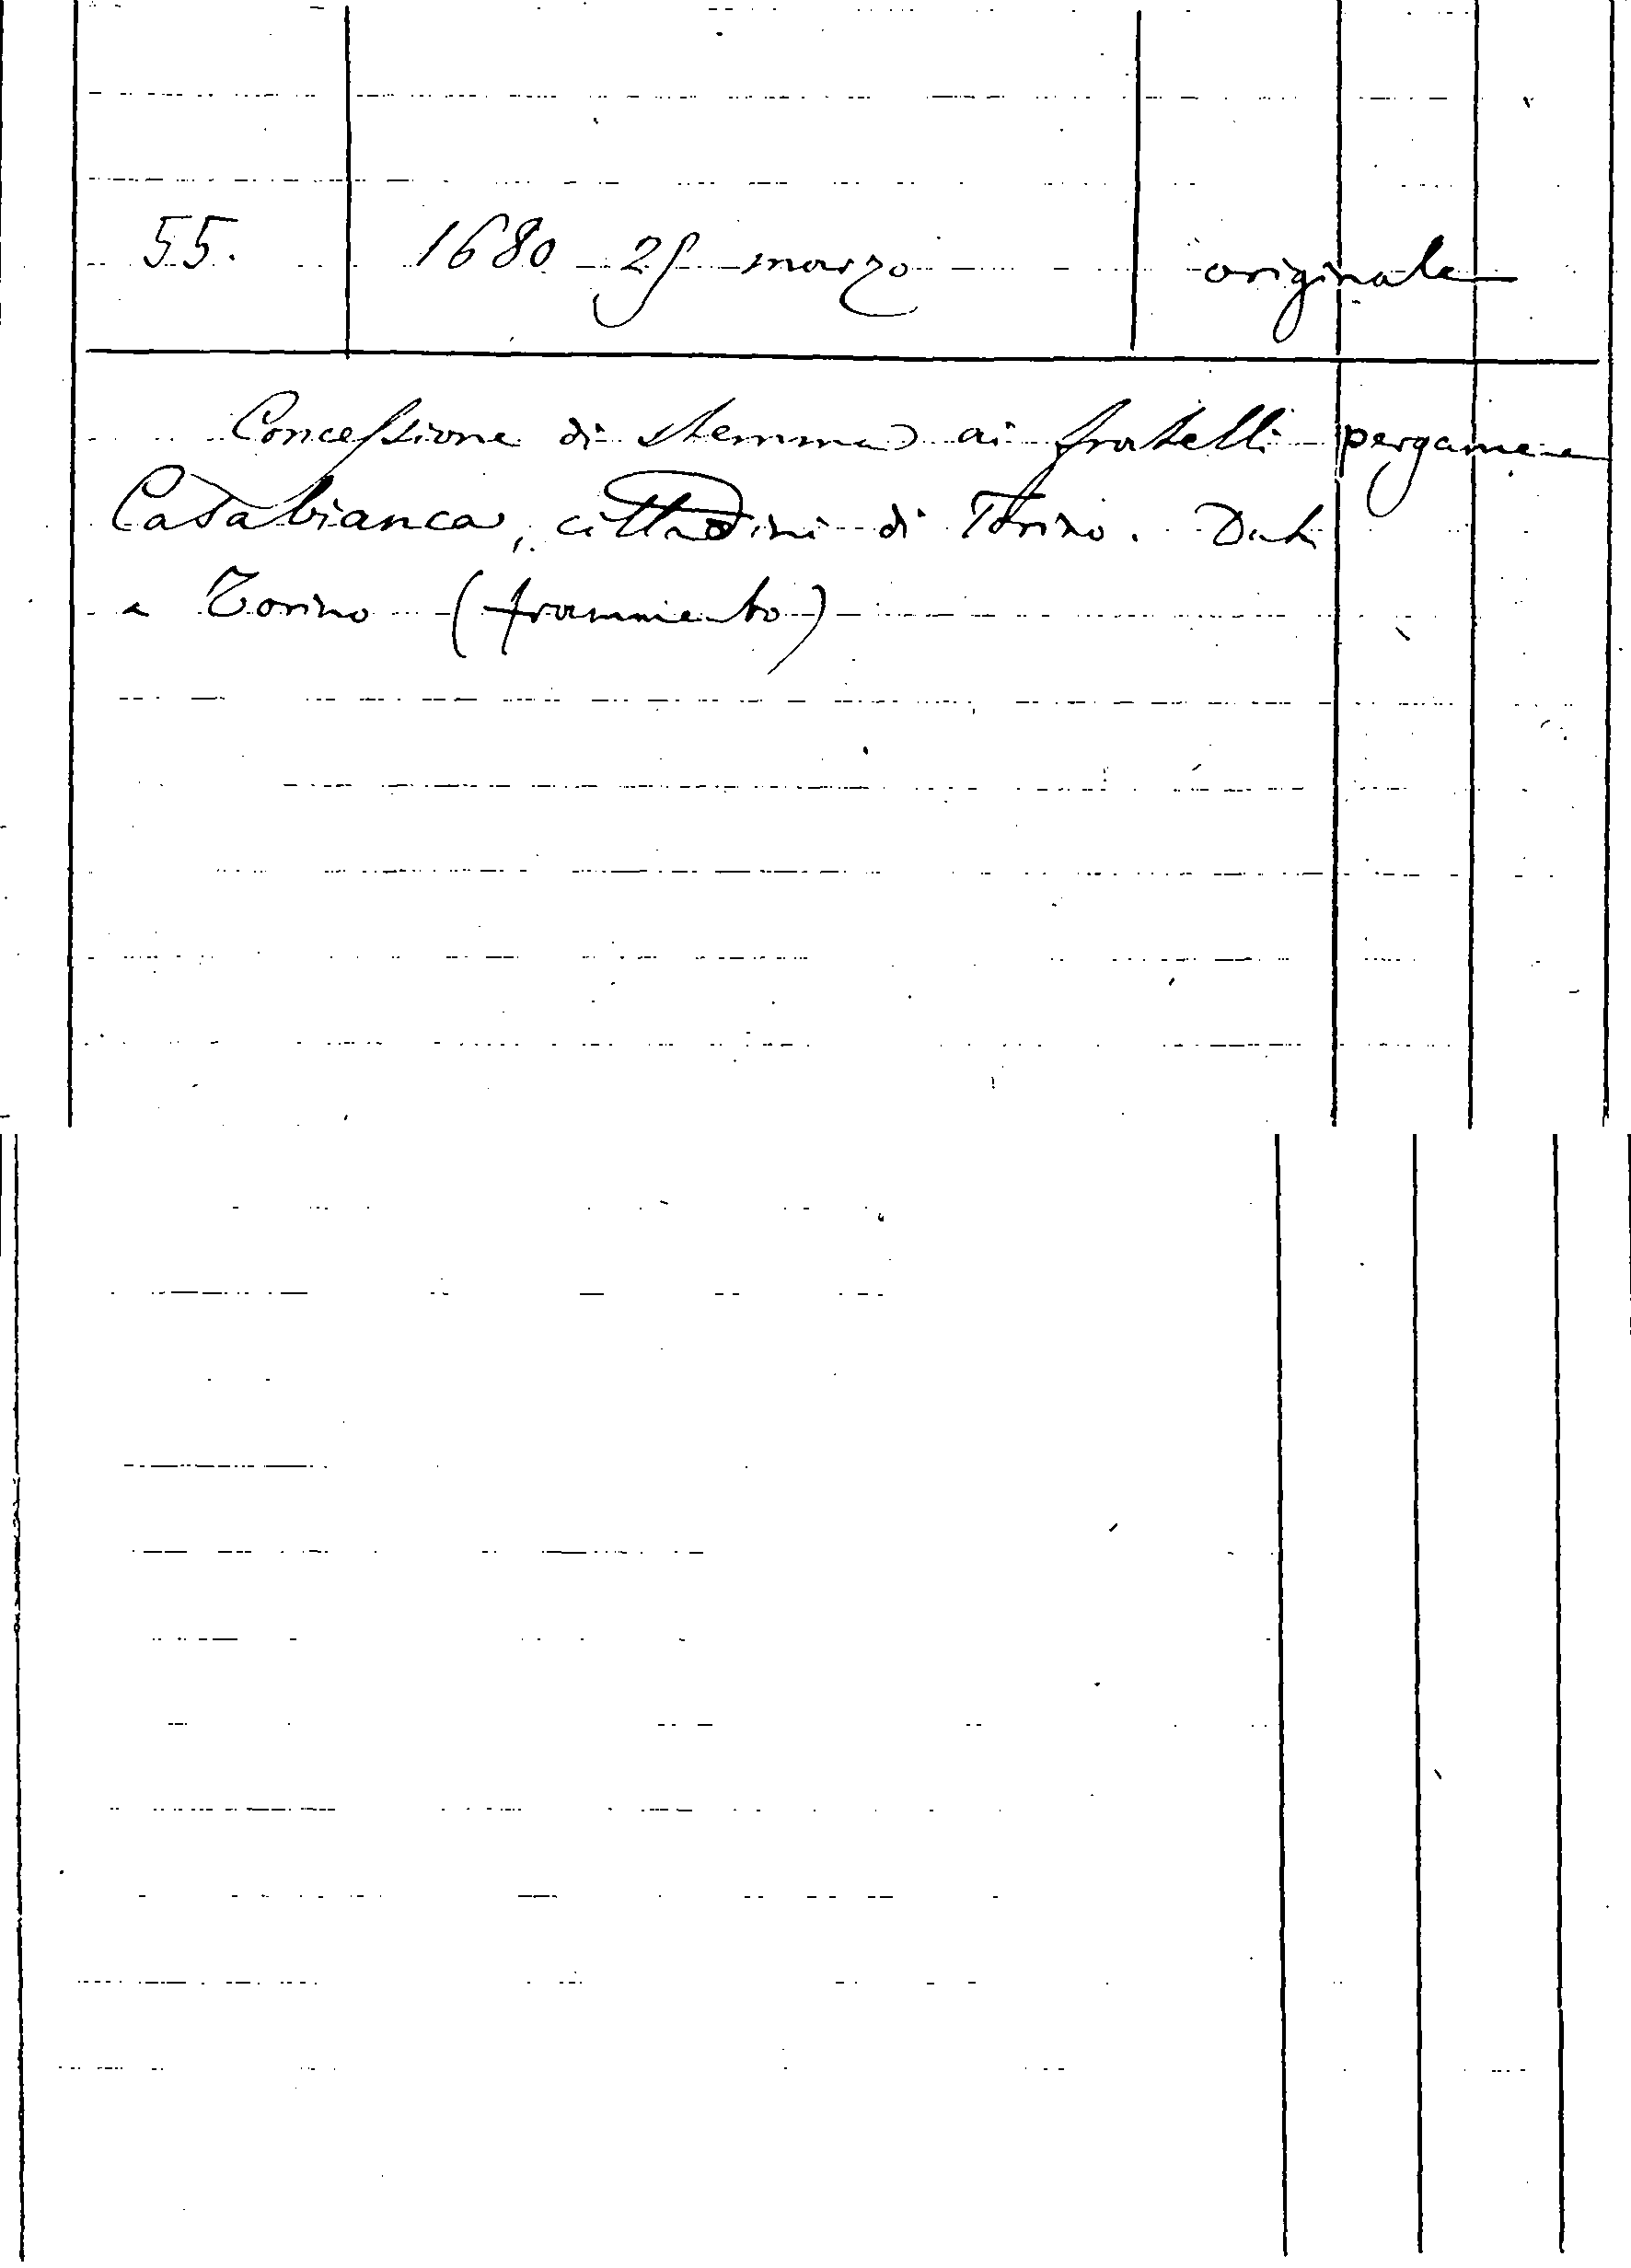 55. 1680 25 marzo originale
Concessione di stemma ai fratelli pergamena
Casabianca, cittadini di Torino. Dat.
a Torino (frammento)